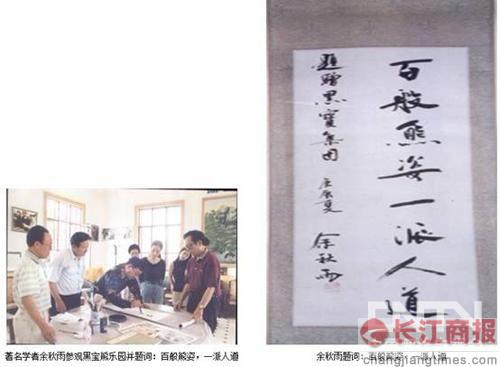 百般熊姿一派人道
题赠黑宝集团
庚辰夏
余秋雨
著名学者余秋雨参观黑宝熊乐园并题词：百般熊姿，一派人道
余秋雨题词：百般熊姿，一派人道
长江商报
changjiangtimes.com